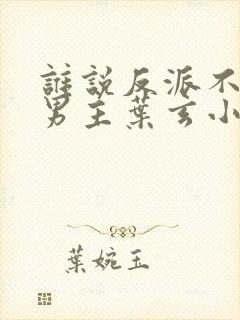 誰説反派不
男主葉玄小
葉婉玉